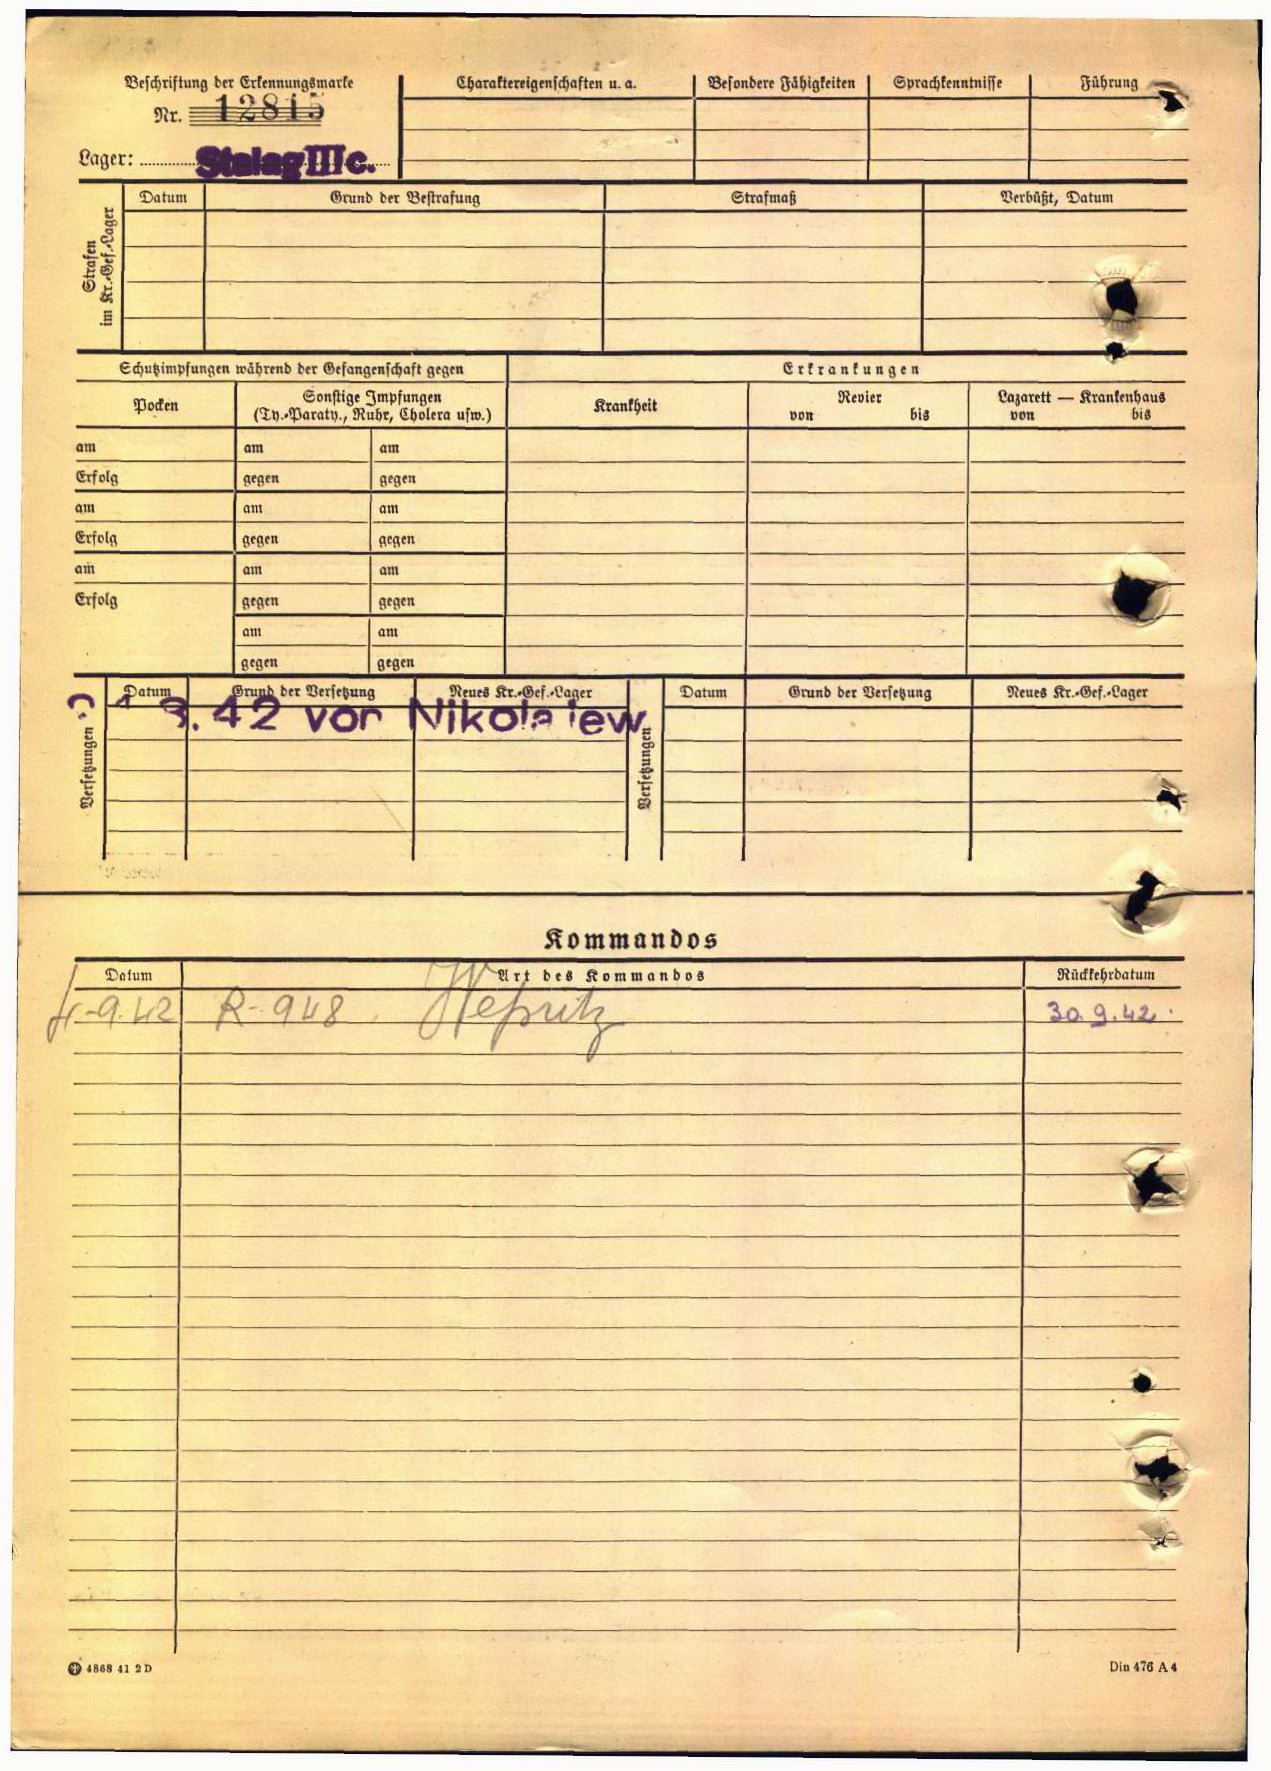 Beschriftung der Erkennungsmarke
Nr. 12815
Lager: Stalag IIIc.
Charaktereigenschaften u. a.
Besondere Fähigkeiten
Sprachkenntnisse
Führung
Strafen im Kr.-Gef.-Lager
Datum
Grund der Bestrafung
Strafmaß
Verbüßt, Datum
Schutzimpfungen während der Gefangenschaft gegen
Erkrankungen
Pocken
Sonstige Impfungen
(Ty.-Paraty., Ruhr, Cholera usw.)
Krankheit
Revier
von bis
Lazarett — Krankenhaus
von bis
am am am
Erfolg gegen gegen
am am am
Erfolg gegen gegen
am am am
Erfolg gegen gegen
am am
gegen gegen
Versetzungen
Datum Grund der Versetzung Neues Kr.-Gef.-Lager
42 von Nikolajew
Versetzungen
Datum Grund der Versetzung Neues Kr.-Gef.-Lager
Kommandos
Datum Art des Kommandos Rückkehrdatum
4.9.42 R-948 30.9.42.
4868 41 2 D
Din 476 A 4